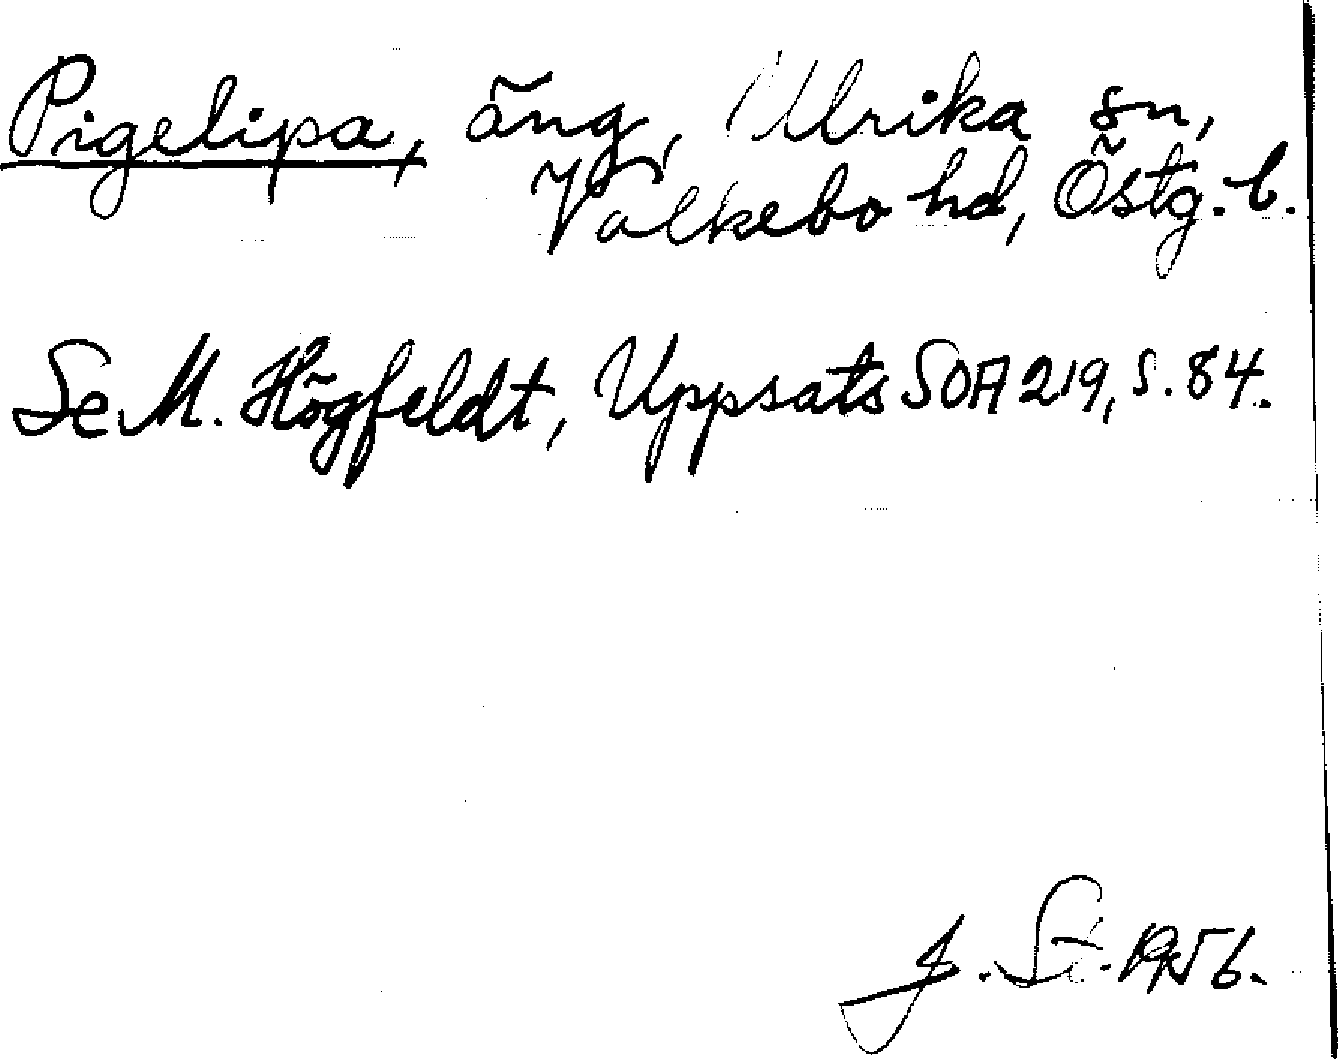 Pigelipa, äng, Ulrika sn,
Valkebo hd, Östg. l.
Se M. Högfeldt, Uppsats SOA 219, s. 84.
J. Sö. 1956.